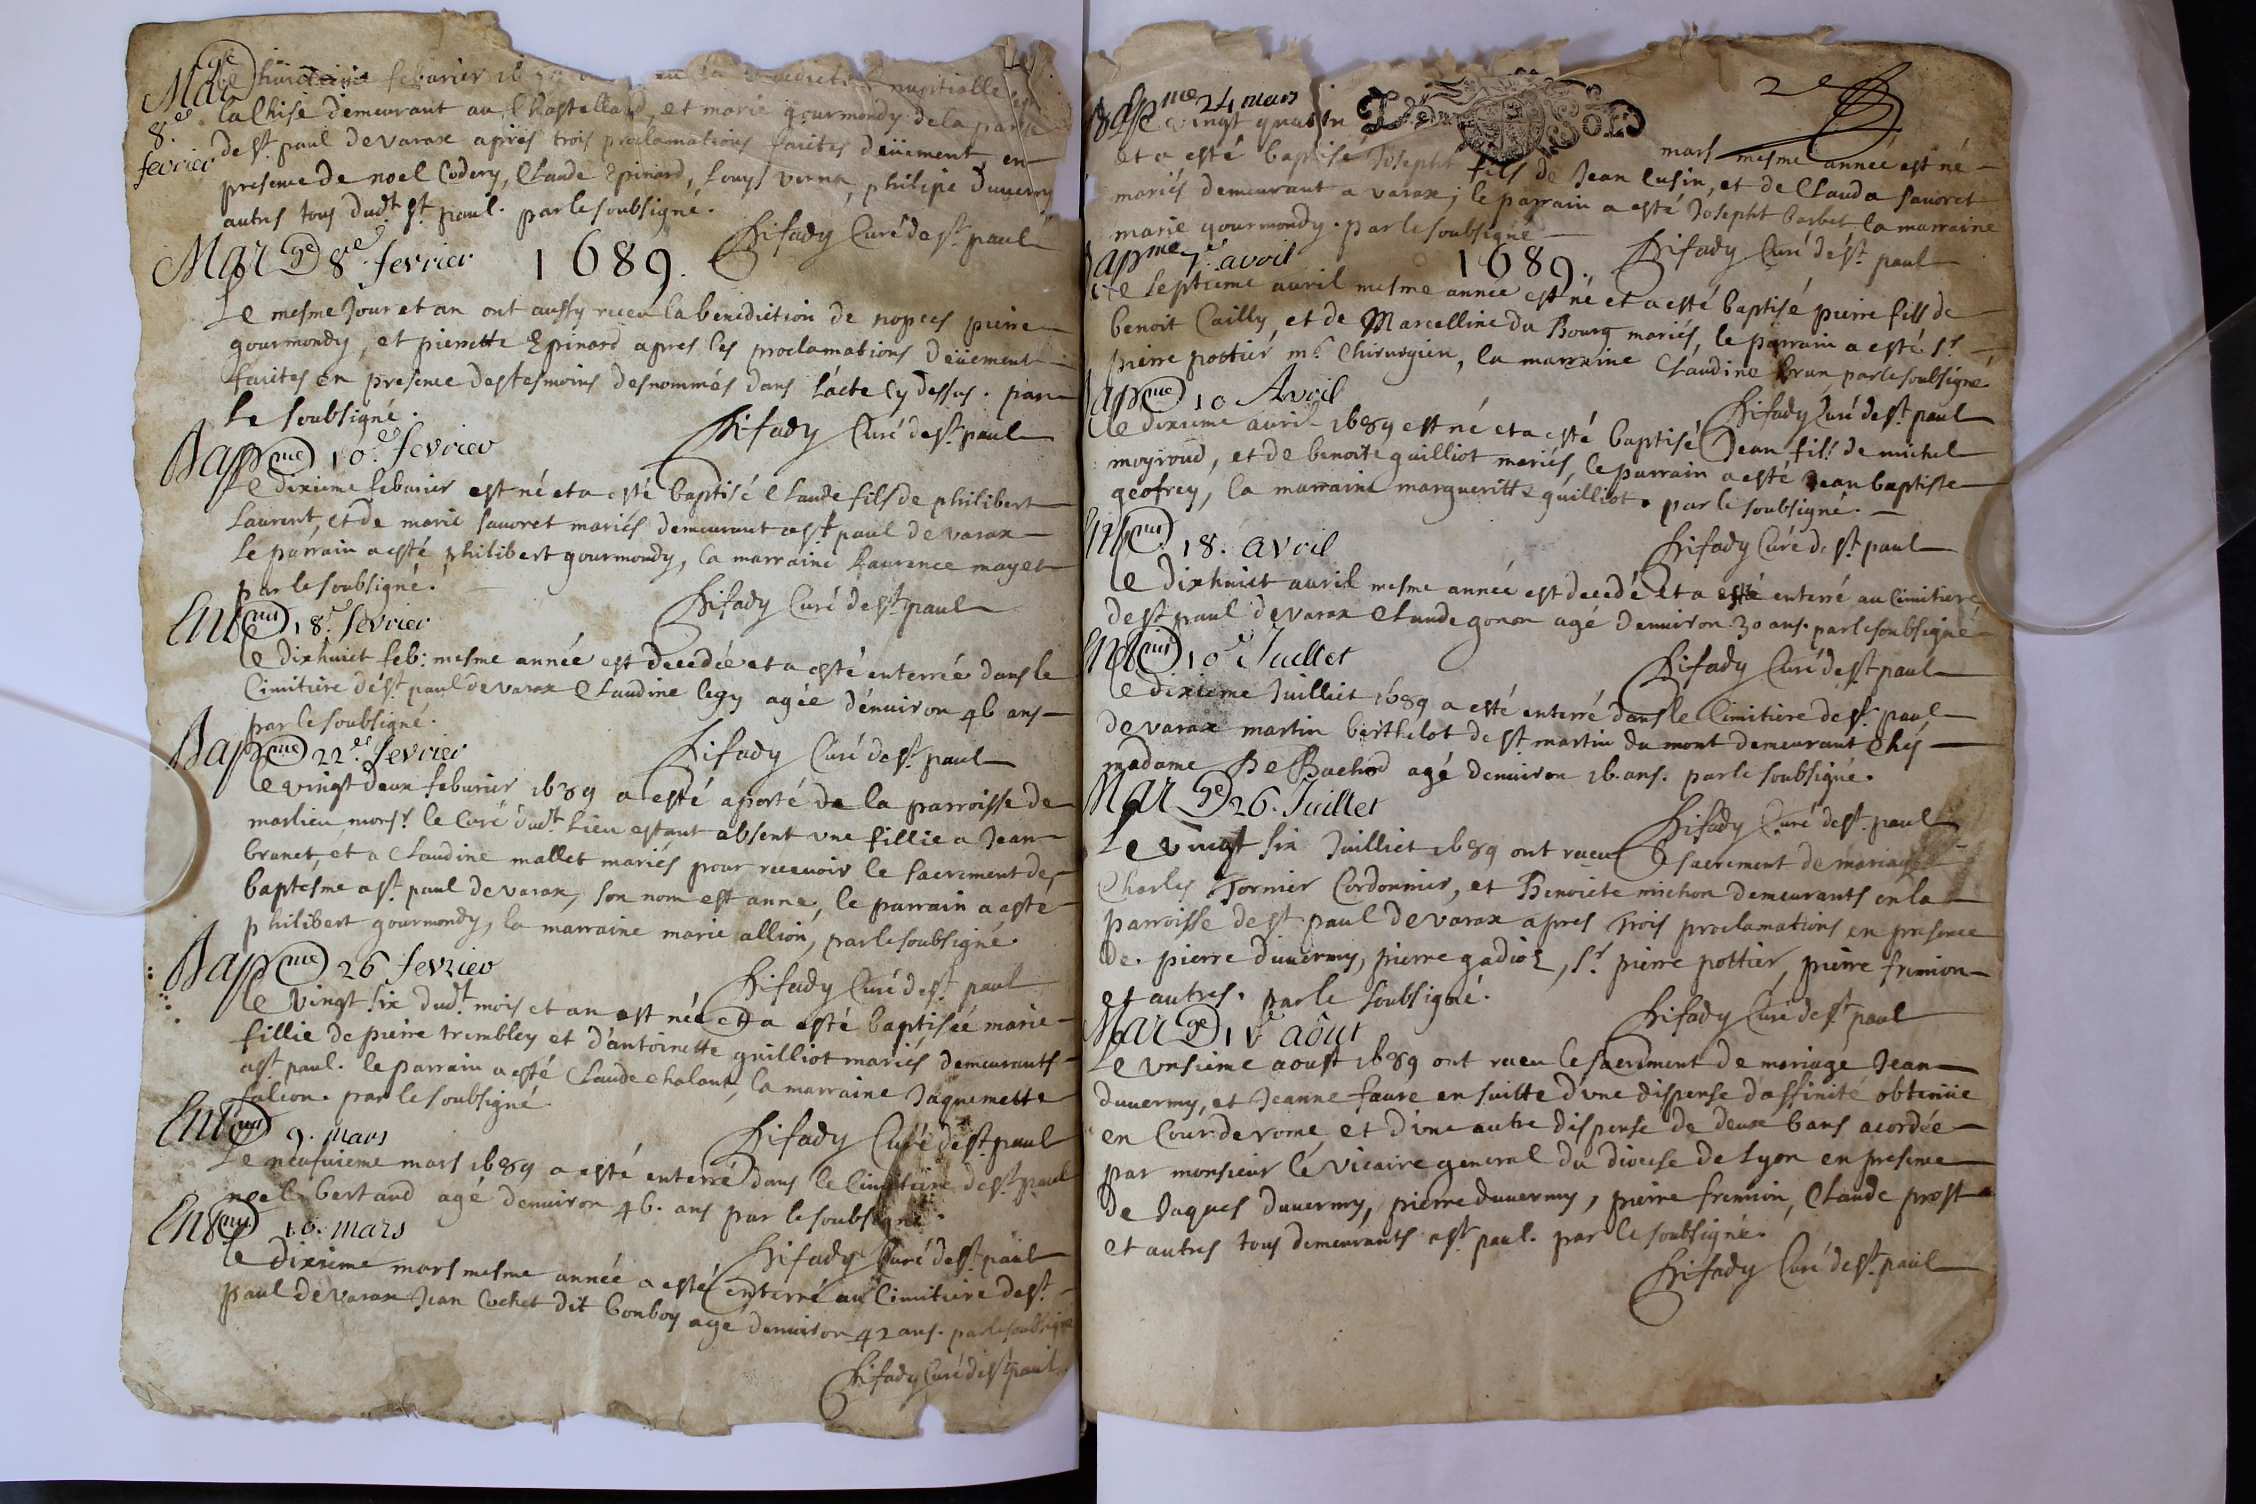 Mar ge
8.e
fevrier
huictieme febvrier nuptialle
la Chise demeurant au Chastellard, et marie gourmondy de la paroisse
de st. paul de varax apres trois proclamations faictes deüement en
presence de noel Codery, Claude Epinard, Louys verna, philipe Duvermy
autres tous dudt. st. paul. par le soubsigné.
Difady Curé de st. paul
Mar ge 8.e fevrier 1689.
Le mesme Jour et an ont aussy receu la benediction de nopces pierre
gourmondy, et pierrette Epinard apres les proclamations deüement
faictes en presence des tesmoins desnommés dans l'acte cy dessus. par
le soubsigné.
Difady Curé de st. paul
Bapme 10.e fevrier
Le dixieme febvrier est né et a esté baptisé Claude fils de philibert
Laurent, et de marie savoret mariés demeurant a st. paul de varax
le parrain a esté philibert gourmondy, la marraine Laurence mayet
par le soubsigné.
Difady Curé de st. paul
Entmt 18.e fevrier
le dixhuict feb: mesme année est decedée et a esté enterrée dans le
Cimitiere de st. paul de varax Claudine legy agée d'environ 46 ans
par le soubsigné.
Difady Curé de st. paul
Bapme 22.e fevrier
Le vingt deux febvrier 1689 a esté aporté de la parroisse de
marlieu monsr. le Curé dudt. lieu estant absent une fillie a Jean
brunet, et a Claudine mallet mariés pour recevoir le sacrement de
baptesme a st. paul de varax, son nom est anne, le parrain a esté
philibert gourmondy, la marraine marie allion, par le soubsigné.
Difady Curé de st. paul
Bapme 26 fevrier
le vingt six dudt. mois et an est née et a esté baptisée marie
fillie de pierre trembley et d'antoinette guilliot mariés demeurants
a st. paul. le parrain a esté Claude chalant, la marraine Jaquemette
falcon. par le soubsigné.
Difady Curé de st. paul
Entmt 9. mars
Le neufvieme mars 1689 a esté enterré dans le Cimitiere de st. paul
noel bertaud agé denviron 46. ans par le soubsigné.
Difady Curé de st. paul
Entmt 10. mars
le dixieme mars mesme année a esté enterré au Cimitiere de st.
paul de varax Jean Cochet dit bonboy agé denviron 42 ans. par le soubsigné
Difady Curé de st. paul
2e
Bapme 24 mars
vingt quatre mars mesme année est né
et a esté baptisé Josepht fils de Jean cusin, et de Clauda savoret
mariés demeurant a varax; le parrain a esté Josepht barbet la marraine
marie gourmondy. par le soubsigné
Difady Curé de st. paul
Bapme 7.e avril 1689.
Le septieme avril mesme année est né et a esté baptisé pierre fils de
benoit Cailly, et de Marcelline du Bourg mariés, le parrain a esté sr.
pierre pottier me. Chirurgien, la marraine Claudine brun, par le soubsigné
Difady Curé de st. paul
Bapme 10 Avril
Le dixieme avril 1689 est né et a esté baptisé Jean fils de michel
moyroud, et de benoite guilliot mariés, le parrain a esté Jean baptiste
geofrey, la marraine margueritte guilliot. par le soubsigné.
Difady Curé de st. paul
Entmt 18. avril
le dixhuict avril mesme année est decedé et a esté enterré au Cimitiere
de st. paul de varax Claude gonon agé denviron 30 ans. par le soubsigné
Difady Curé de st. paul
Entmt 10.e Juillet
Le dixieme Juilliet 1689 a esté enterré dans le Cimitiere de st. paul
de varax martin berthelot de st. martin du mont demeurant chés
madame De Bachod agé denviron 16. ans. par le soubsigné.
Difady Curé de st. paul
Mar ge 26. Juillet
Le vingt six Juilliet 1689 ont receu le sacrement de mariage
Charles Tornier Cordonnier, et Benoicte michon demeurants en la
parroisse de st. paul de varax apres trois proclamations en presence
de. pierre duvermy, pierre gadiol, sr. pierre pottier, pierre fremion
et autres. par le soubsigné.
Difady Curé de st. paul
Mar ge 11.e aôut
Le unsieme aoust 1689 ont receu le sacrement de mariage Jean
duvermy, et Jeanne faure en suitte d'une dispense d'affinité obtenüe
en Cour de rome, et d'une autre dispense de deux bans acordée
par monsieur le vicaire general du diocese de Lyon en presence
de Jaques duvermy, pierre duvermy, pierre fremion, Claude prost
et autres tous demeurants a st. paul. par le soubsigné.
Difady Curé de st. paul